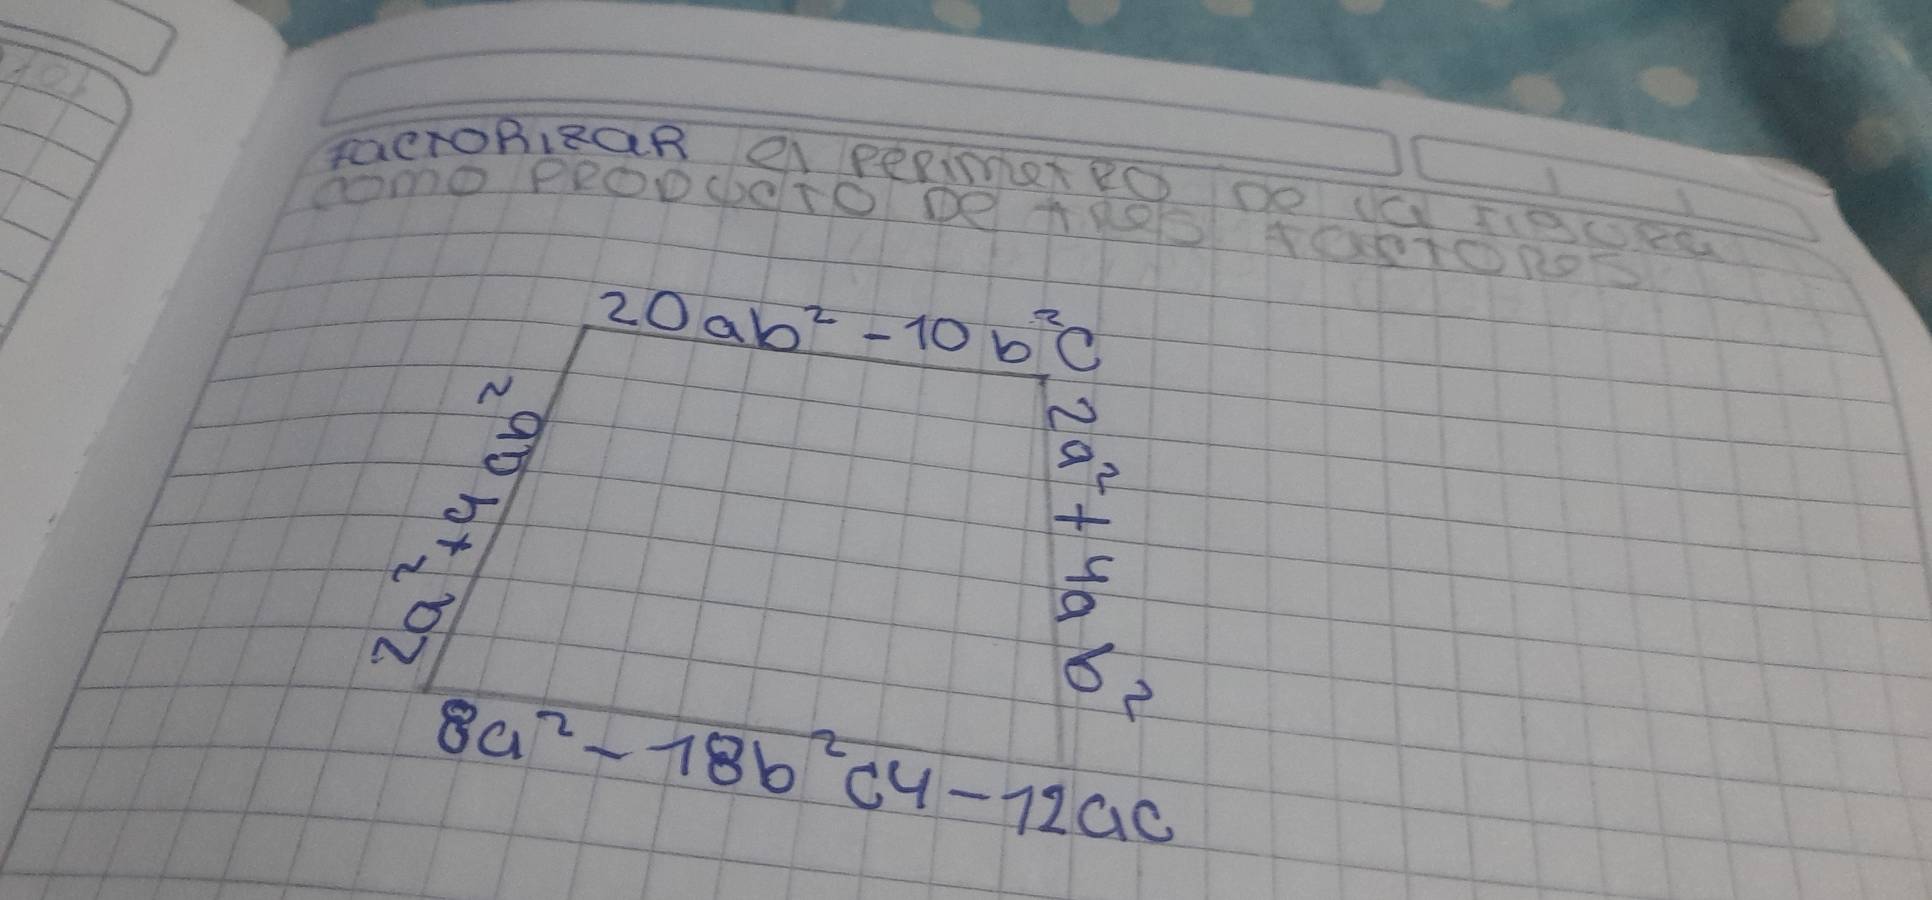 FACTORIZAR el PERIMETRO DE la FIGURA
COMO PRODUCTO DE TRES FACTORES
20ab² - 10b²c
2a² + 4ab²
2a² + 4ab²
8a² - 18b²c4 - 12ac